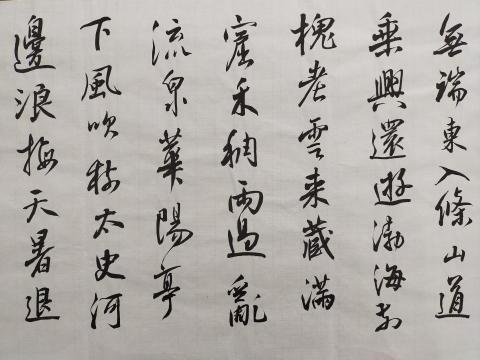 無端東入條山道
乘興還遊渤海前
槐老雲来藏滿
窟禾稠雨過亂
流泉華陽亭
下風吹太史河
邊浪天暑退